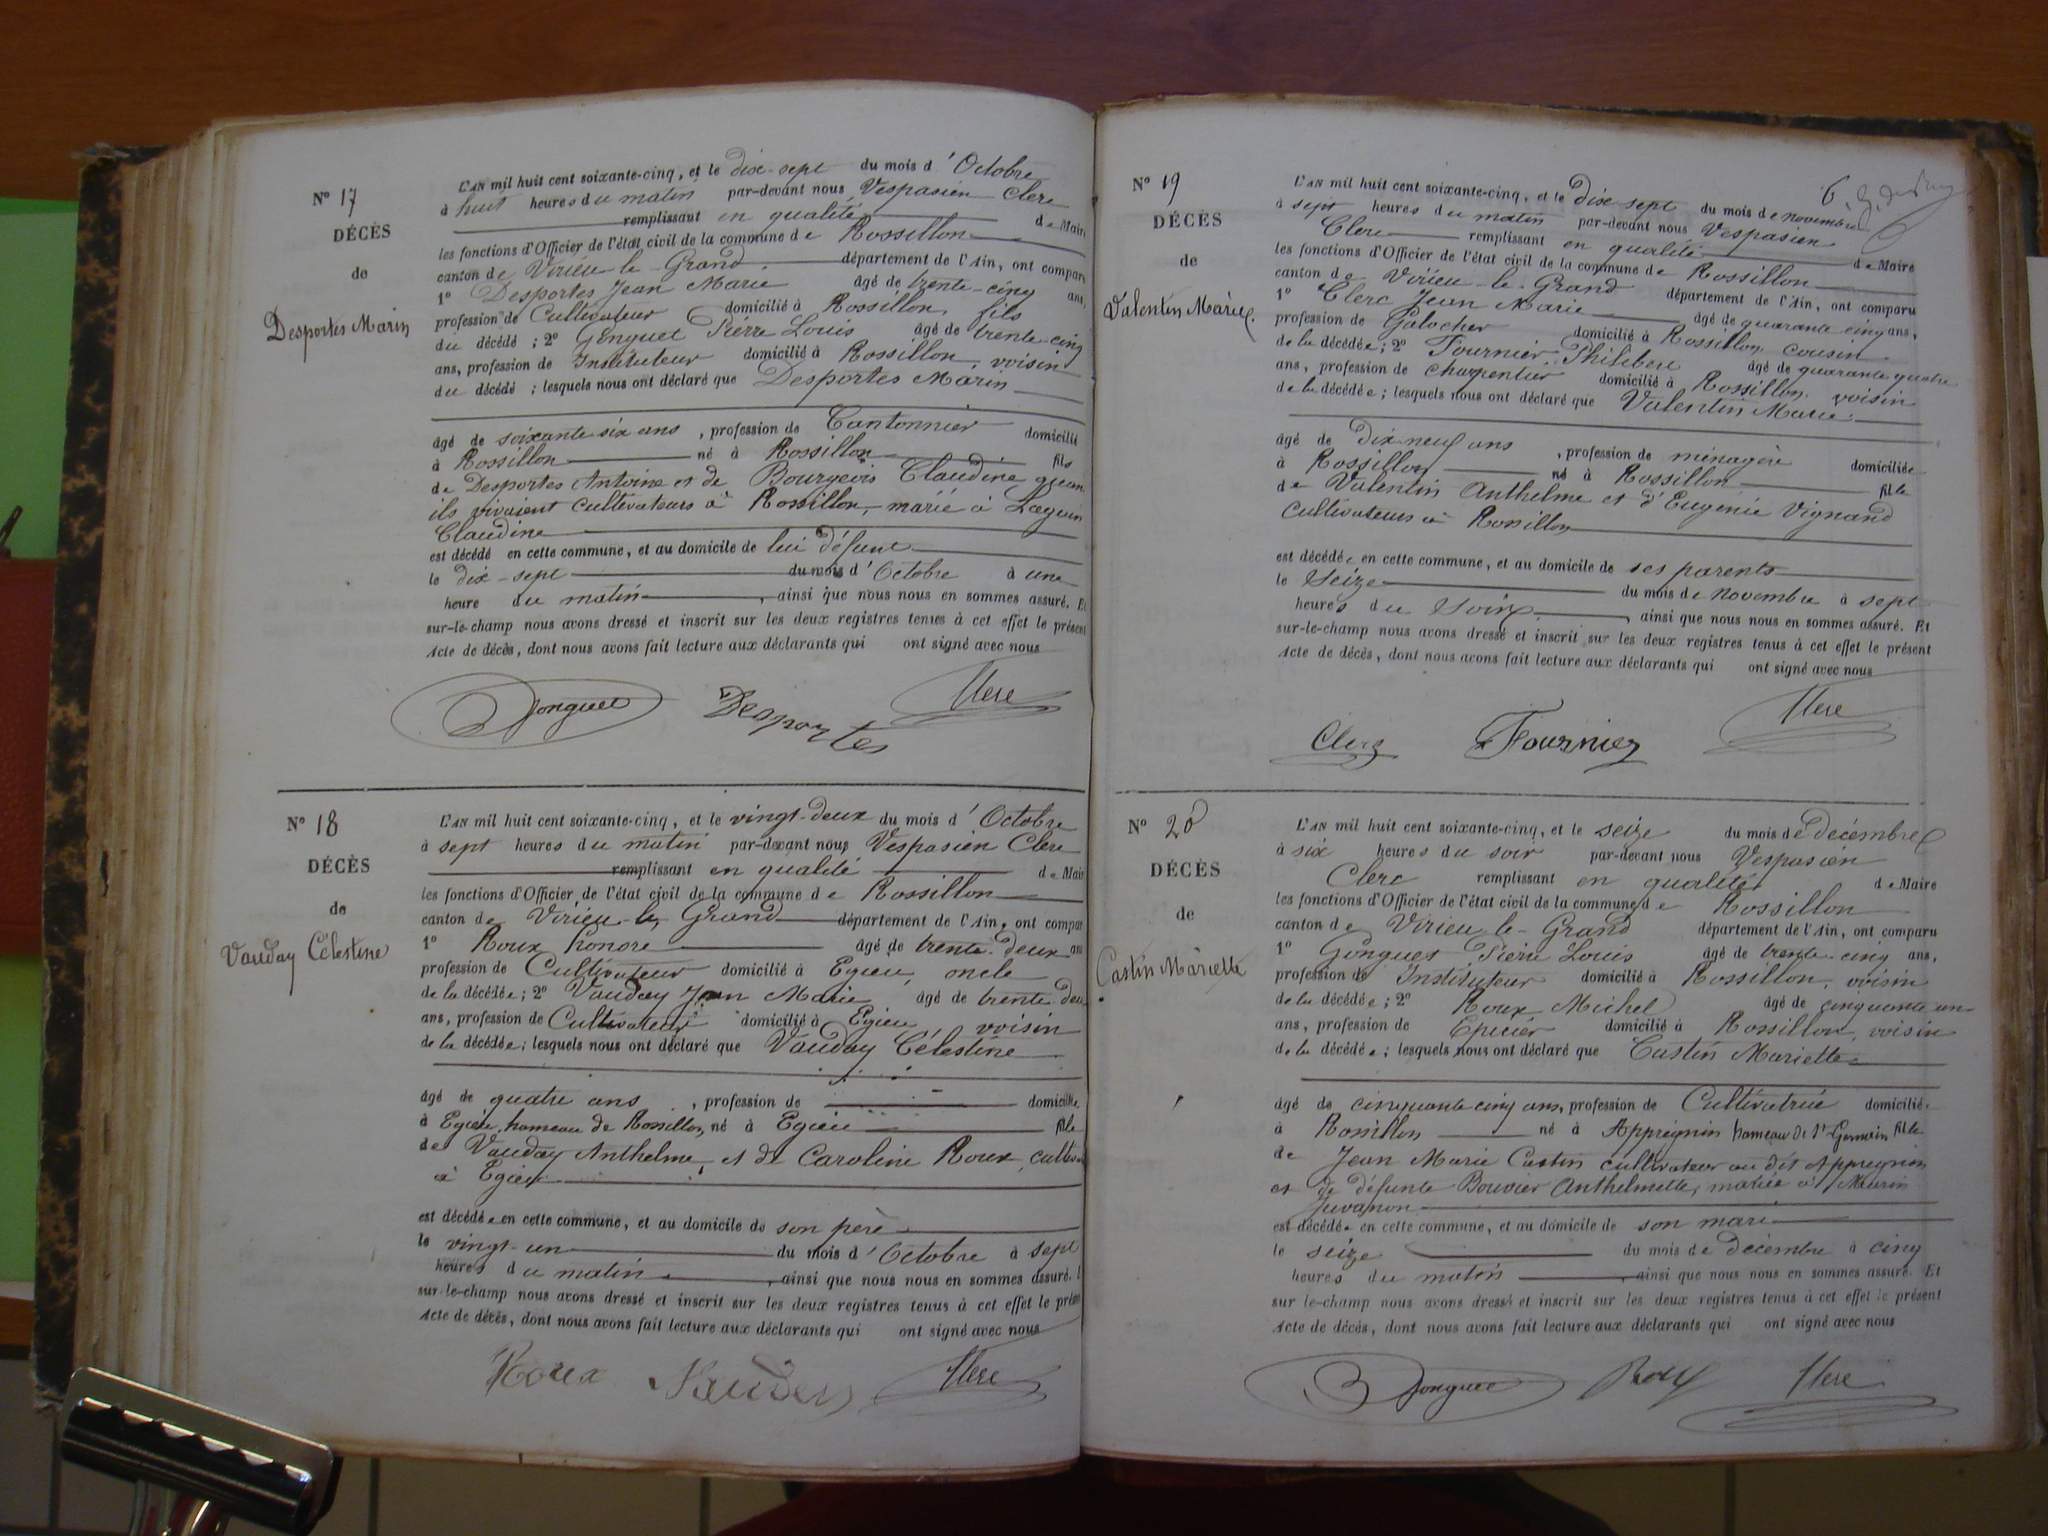 N° 17
DÉCÈS
de
Desportes Marin
L'AN mil huit cent soixante-cinq, et le dix-sept du mois d'Octobre
à huit heures du matin par-devant nous Vespasien Clerc
remplissant en qualité de Maire
les fonctions d'Officier de l'état civil de la commune de Rossillon
canton de Virieu-le-Grand département de l'Ain, ont comparu
1° Desportes Jean Marie âgé de trente-cinq ans,
profession de Cultivateur domicilié à Rossillon, fils
du décédé ; 2° Gonguet Pierre Louis âgé de trente cinq
ans, profession de Instituteur domicilié à Rossillon, voisin
du décédé ; lesquels nous ont déclaré que Desportes Marin
âgé de soixante six ans , profession de Cantonnier domicilié
à Rossillon né à Rossillon fils
de Desportes Antoine et de Bourgeois Claudine quan
ils vivaient cultivateurs à Rossillon, marié à
Claudine
est décédé en cette commune, et au domicile de lui défunt
le dix-sept du mois d'Octobre à une
heure du matin , ainsi que nous nous en sommes assuré. Et
sur-le-champ nous avons dressé et inscrit sur les deux registres tenus à cet effet le présent
Acte de décès, dont nous avons fait lecture aux déclarants qui ont signé avec nous
Gonguet Desportes Clerc
N° 18
DÉCÈS
de
Vauday Célestine
L'AN mil huit cent soixante-cinq, et le vingt-deux du mois d'Octobre
à sept heures du matin par-devant nous Vespasien Clerc
remplissant en qualité de Mair
les fonctions d'Officier de l'état civil de la commune de Rossillon
canton de Virieu-le-Grand département de l'Ain, ont compar
1° Roux honoré âgé de trente-deux ans
profession de Cultivateur domicilié à Egieu, oncle
de la décédée ; 2° Vauday Jean Marie âgé de trente deu
ans, profession de Cultivateur domicilié à Egieu, voisin
de la décédée ; lesquels nous ont déclaré que Vauday Célestine
âgé de quatre ans , profession de domiciliée
à Egieu, hameau de Rossillon, né à Egieu fille
de Vauday Anthelme, et de Caroline Roux, cultiva
à Egieu
est décédée en cette commune, et au domicile de son père
le vingt-un du mois d'Octobre à sept
heures du matin , ainsi que nous nous en sommes assuré.
sur-le-champ nous avons dressé et inscrit sur les deux registres tenus à cet effet le présen
Acte de décès, dont nous avons fait lecture aux déclarants qui ont signé avec nous
Roux Vauday Clerc
6.
N° 19
DÉCÈS
de
Valentin Marie
L'AN mil huit cent soixante-cinq, et le dix-sept du mois de novembre
à sept heures du matin par-devant nous Vespasien
Clerc remplissant en qualité de Maire
les fonctions d'Officier de l'état civil de la commune de Rossillon
canton de Virieu-le-Grand département de l'Ain, ont comparu
1° Clerc Jean Marie âgé de quarante cinq ans,
profession de Galocher domicilié à Rossillon, cousin
de la décédée ; 2° Fournier Philibert âgé de quarante quatre
ans, profession de charpentier domicilié à Rossillon, voisin
de la décédée ; lesquels nous ont déclaré que Valentin Marie
âgé de dix-neuf ans , profession de ménagère domiciliée
à Rossillon né à Rossillon fille
de Valentin Anthelme et d'Eugénie Vignand
cultivateurs à Rossillon
est décédée en cette commune, et au domicile de ses parents
le Seize du mois de novembre à sept
heures du Soir , ainsi que nous nous en sommes assuré. Et
sur-le-champ nous avons dressé et inscrit sur les deux registres tenus à cet effet le présent
Acte de décès, dont nous avons fait lecture aux déclarants qui ont signé avec nous
Clerc Fournier Clerc
N° 20
DÉCÈS
de
Castin Mariette
L'AN mil huit cent soixante-cinq, et le seize du mois de décembre
à six heures du soir par-devant nous Vespasien
Clerc remplissant en qualité de Maire
les fonctions d'Officier de l'état civil de la commune de Rossillon
canton de Virieu-le-Grand département de l'Ain, ont comparu
1° Gonguet Pierre Louis âgé de trente cinq ans,
profession de Instituteur domicilié à Rossillon, voisin
de la décédée ; 2° Roux Michel âgé de cinquante un
ans, profession de Epicier domicilié à Rossillon, voisin
de la décédée ; lesquels nous ont déclaré que Castin Mariette
âgé de cinquante cinq ans, profession de Cultivatrice domiciliée
à Rossillon né à Appregnin hameau de St Germain fille
de Jean Marie Castin cultivateur au dit Appregnin
et de défunte Bouvier Anthelmette, mariée à Marin
Juvanon
est décédée en cette commune, et au domicile de son mari
le seize du mois de décembre à cinq
heures du matin , ainsi que nous nous en sommes assuré. Et
sur le-champ nous avons dressé et inscrit sur les deux registres tenus à cet effet le présent
Acte de décès, dont nous avons fait lecture aux déclarants qui ont signé avec nous
Gonguet Roux Clerc